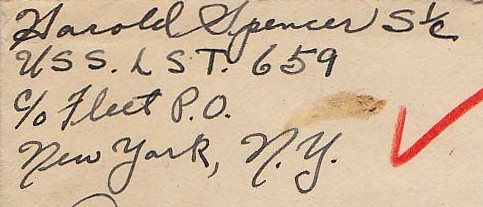 Harold Spencer S 1/c
USS. LST. 659
c/o Fleet P.O.
New York, N.Y.